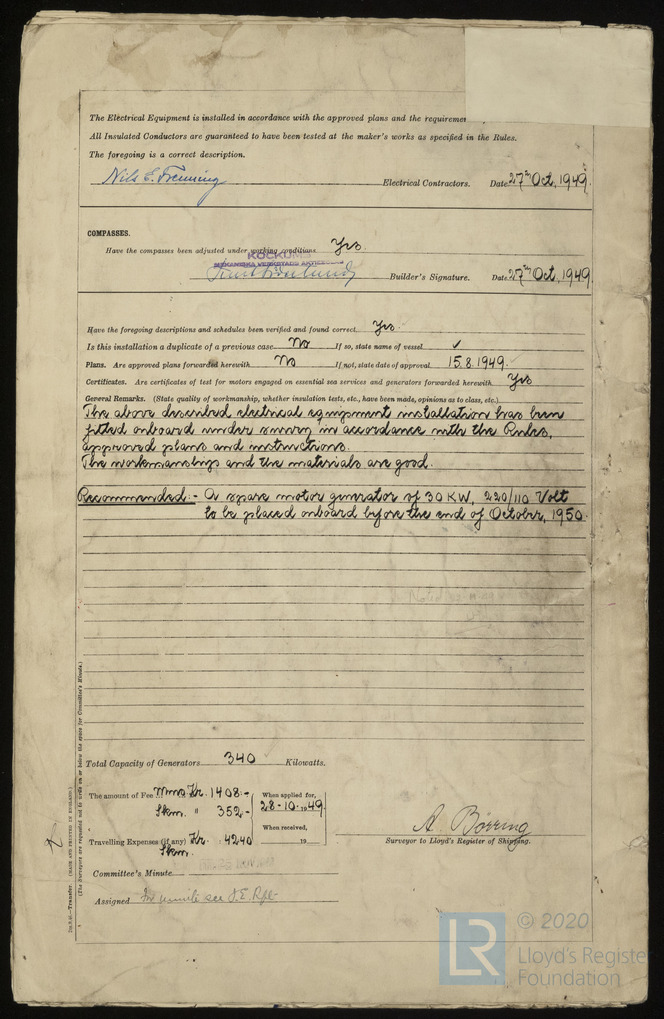 The Electrical Equipment is installed in accordance with the approved plans and the requiremen
All Insulated Conductors are guaranteed to have been tested at the maker's works as specified in the Rules.
The foregoing is a correct description.
Nils E. Electrical Contractors. Date 27th Oct, 1949.
COMPASSES.
Have the compasses been adjusted under working conditions Yes.
KOCKUMS
MEKANISKA VERKSTADS
Builder's Signature. Date 27th Oct, 1949
Have the foregoing descriptions and schedules been verified and found correct Yes
Is this installation a duplicate of a previous case No If so, state name of vessel ✓
Plans. Are approved plans forwarded herewith No If not, state date of approval 15.8.1949.
Certificates. Are certificates of test for motors engaged on essential sea services and generators forwarded herewith Yes
General Remarks. (State quality of workmanship, whether insulation tests, etc., have been made, opinions as to class, etc.)
The above described electrical equipment installation has been
fitted onboard under survey in accordance with the Rules,
approved plans and instructions.
The workmanships and the materials are good.
Recommended:- A spare motor generator of 30 KW, 220/110 Volt
to be placed onboard before the end of October, 1950.
Noted
Total Capacity of Generators 340 Kilowatts.
The amount of Fee Mms Kr. 1408:- When applied for,
Skm. " 352:- 28-10-1949
When received,
Travelling Expenses (if any) Kr. 42.40 19
Skm.
A. Börring
Surveyor to Lloyd's Register of Shipping.
Committee's Minute
Assigned For minute see J.E. Rpt
(MADE AND PRINTED IN ENGLAND.)
(The Surveyors are requested not to write on or below the space for Committee's Minute.)
© 2020
LR Lloyd's Register
Foundation